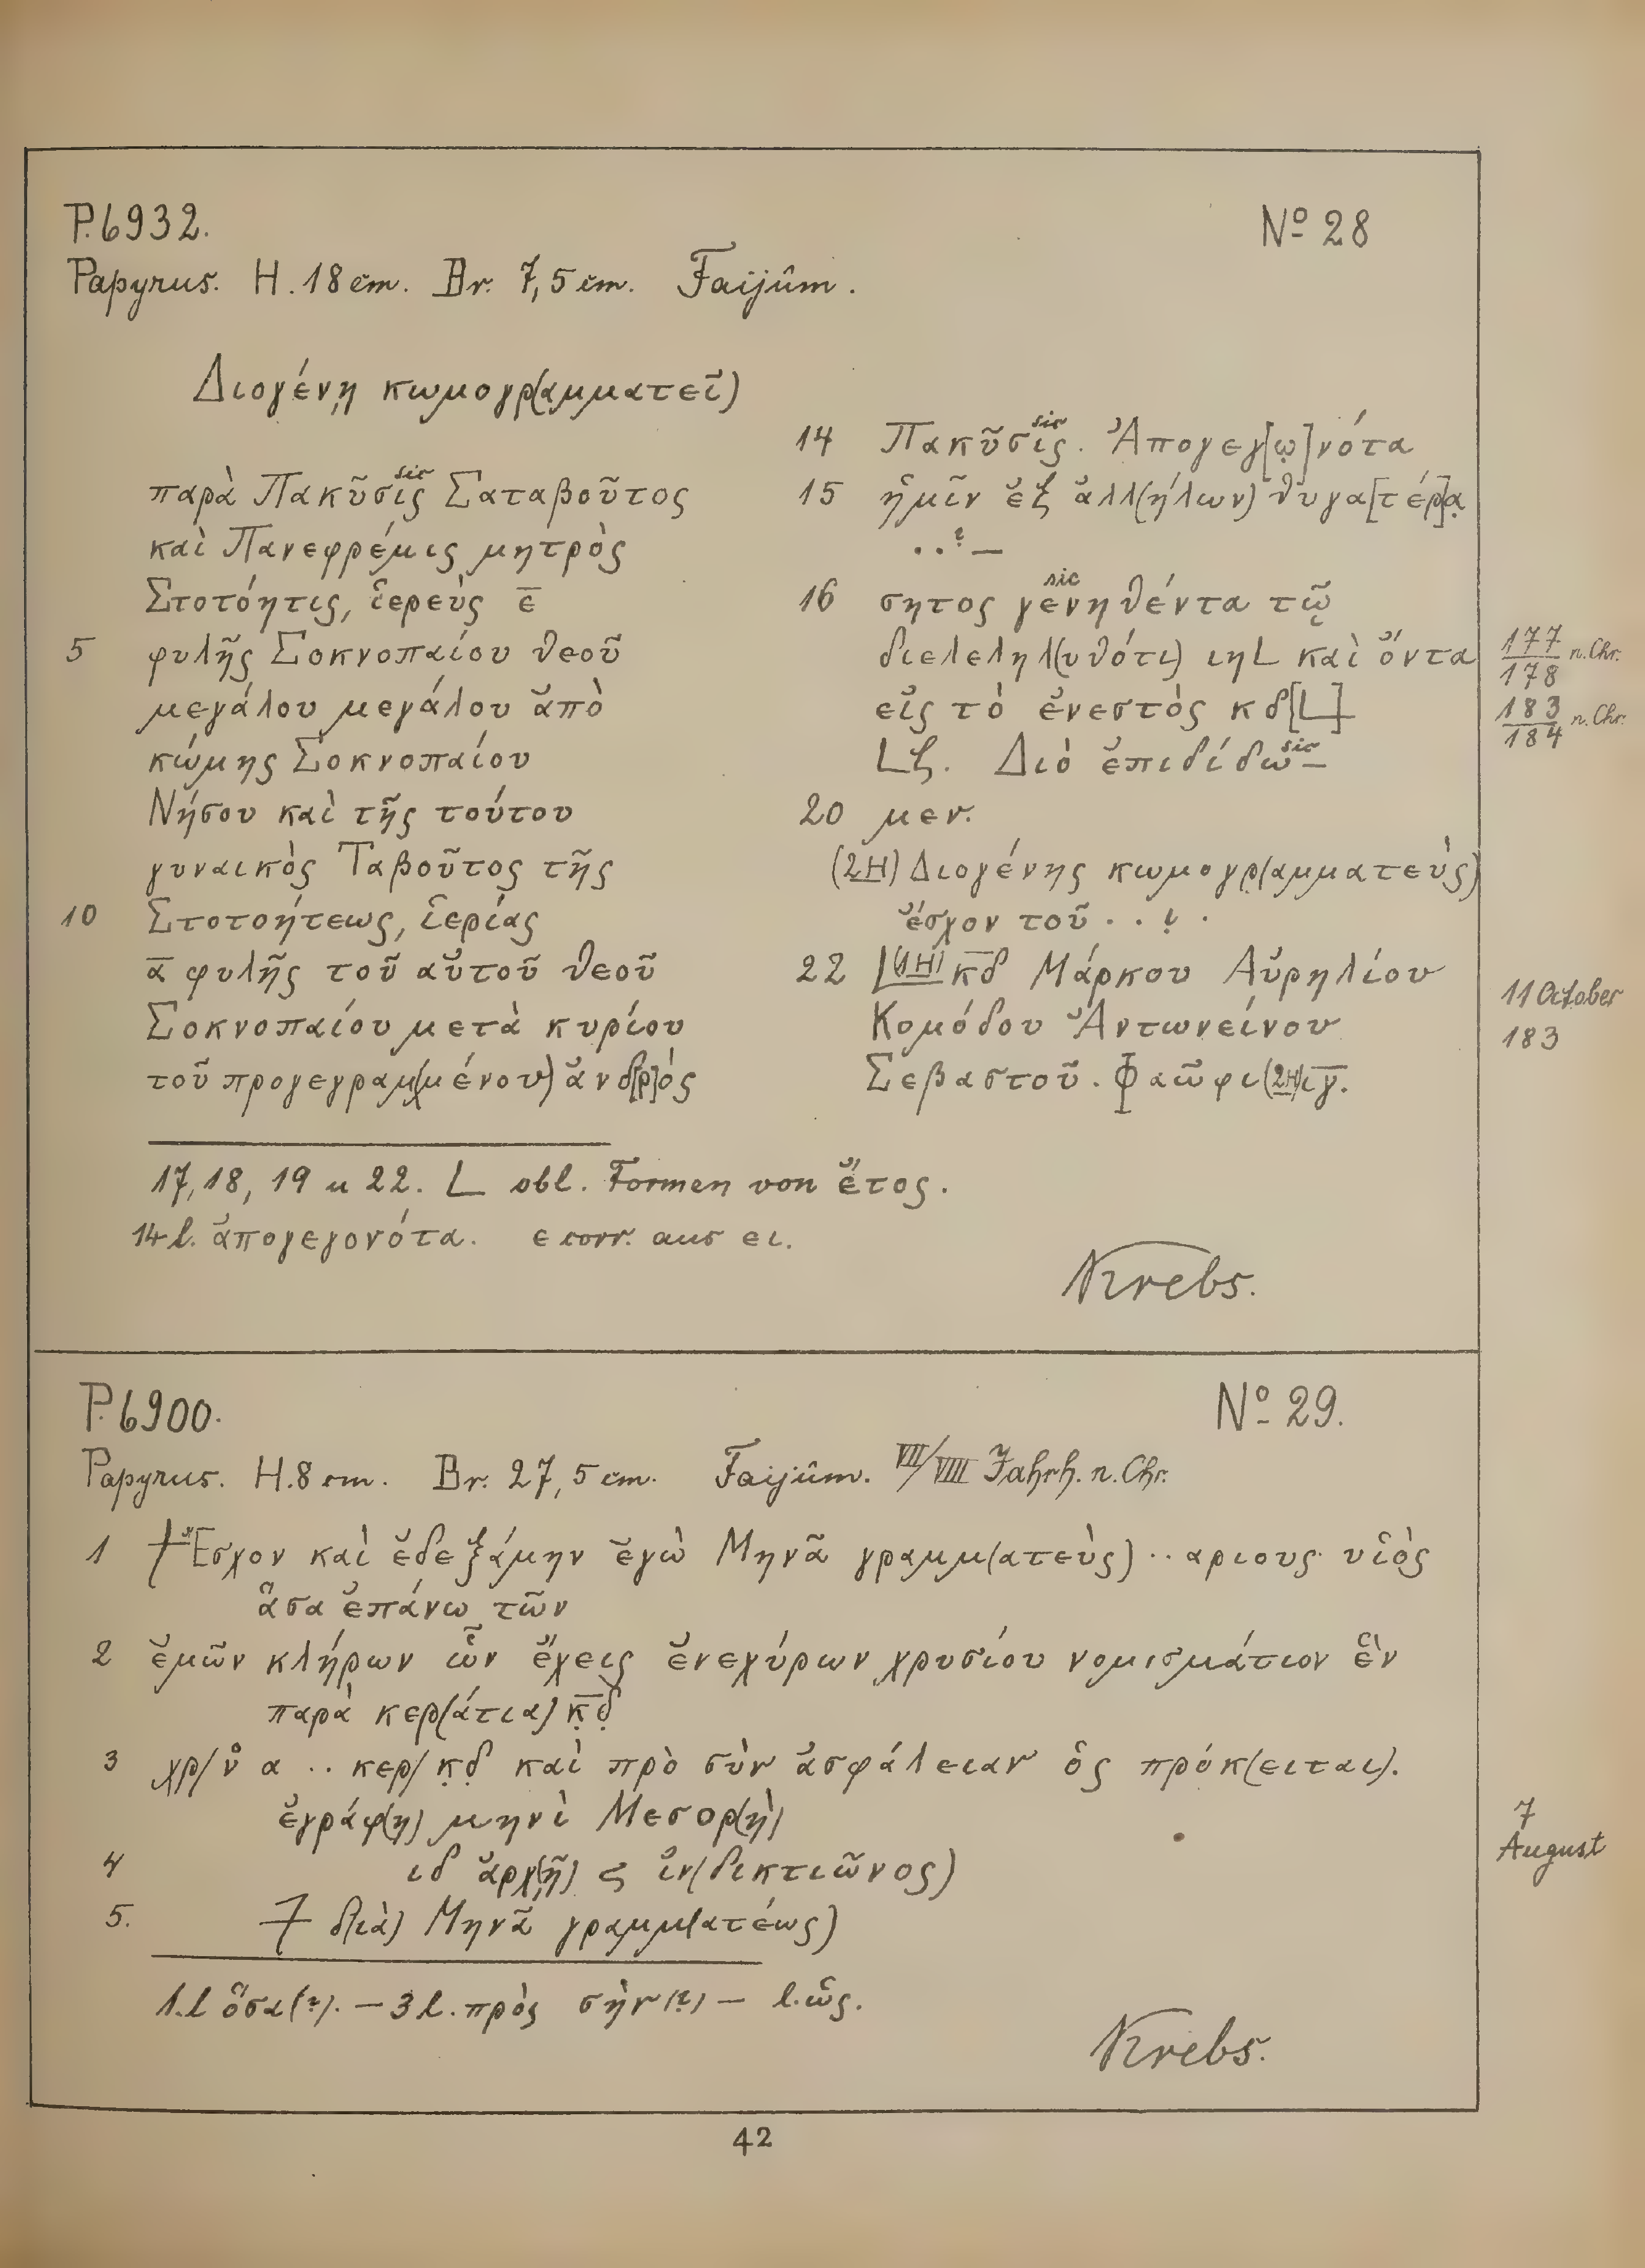 P. 6932. Nº 28
Papyrus. H. 18 cm. Br. 7,5 cm. Faijûm.
Διογένῃ κωμογρ(αμματεῖ)
παρὰ Πακῦσις (sic) Σαταβοῦτος
καὶ Πανεφρέμις μητρὸς
Στοτόητις, ἱερεὺς ε̅
5 φυλῆς Σοκνοπαίου θεοῦ
μεγάλου μεγάλου ἀπὸ
κώμης Σοκνοπαίου
Νήσου καὶ τῆς τούτου
γυναικὸς Ταβοῦτος τῆς
10 Στοτοήτεως, ἱερίας
α̅ φυλῆς τοῦ αὐτοῦ θεοῦ
Σοκνοπαίου μετὰ κυρίου
τοῦ προγεγραμ(μένου) ἀνδ[ρ]ός
14 Πακῦσις (sic). Ἀπογεγ[ω̣]νότα
15 ἡμῖν ἐξ ἀλλ(ήλων) θυγα[τέρ]α̣
. . ? —
16 σητος γενηθέντα (sic) τῷ
διεληλ(υθότι) ιη L καὶ ὄντα
177/178 n. Chr.
εἰς τὸ ἐνεστὸς κδ [L]
183/184 n. Chr.
L ζ. Διὸ ἐπιδίδω (sic) —
20 μεν.
(2 H) Διογένης κωμογρ(αμματεὺς)
ἔσχον τοῦ . . ? .
22 L (1 H) κ̅δ̅ Μάρκου Αὐρηλίου
11 October
Κομόδου Ἀντωνείνου
183
Σεβαστοῦ. Φαῶφι (2 H) ι̅γ̅.
17, 18, 19 u 22. L obl. Formen von ἔτος.
14 l. ἀπογεγονότα. ε corr. aus ει.
Krebs.
P. 6900. Nº 29.
Papyrus. H. 8 cm. Br. 27,5 cm. Faijûm. VII/VIII Jahrh. n. Chr.
1 † Ἔσχον καὶ ἐδεξάμην ἐγὼ Μηνᾶ γραμμ(ατεὺς) .. αριους υἱὸς
ἅσα ἐπάνω τῶν
2 ἐμῶν κλήρων ὧν ἔχεις ἐνεχύρων χρυσίου νομισμάτιον ἓν
παρὰ κερ(άτια) κ̣̅δ̣̅
3 χρ/ ν̊ α .. κερ/ κ̣δ̣ καὶ πρὸ σὺν ἀσφάλειαν ὁς πρόκ(ειται).
ἐγράφ(η) μηνὶ Μεσορ(ὴ)
7
August
4 ιδ ἀρχ(ῇ) ς ἰν(δικτιῶνος)
5. † δ(ιὰ) Μηνᾶ γραμμ(ατέως)
1. l ὅσα (?). — 3 l. πρὸς σὴν (?) — l. ὡς.
Krebs.
42